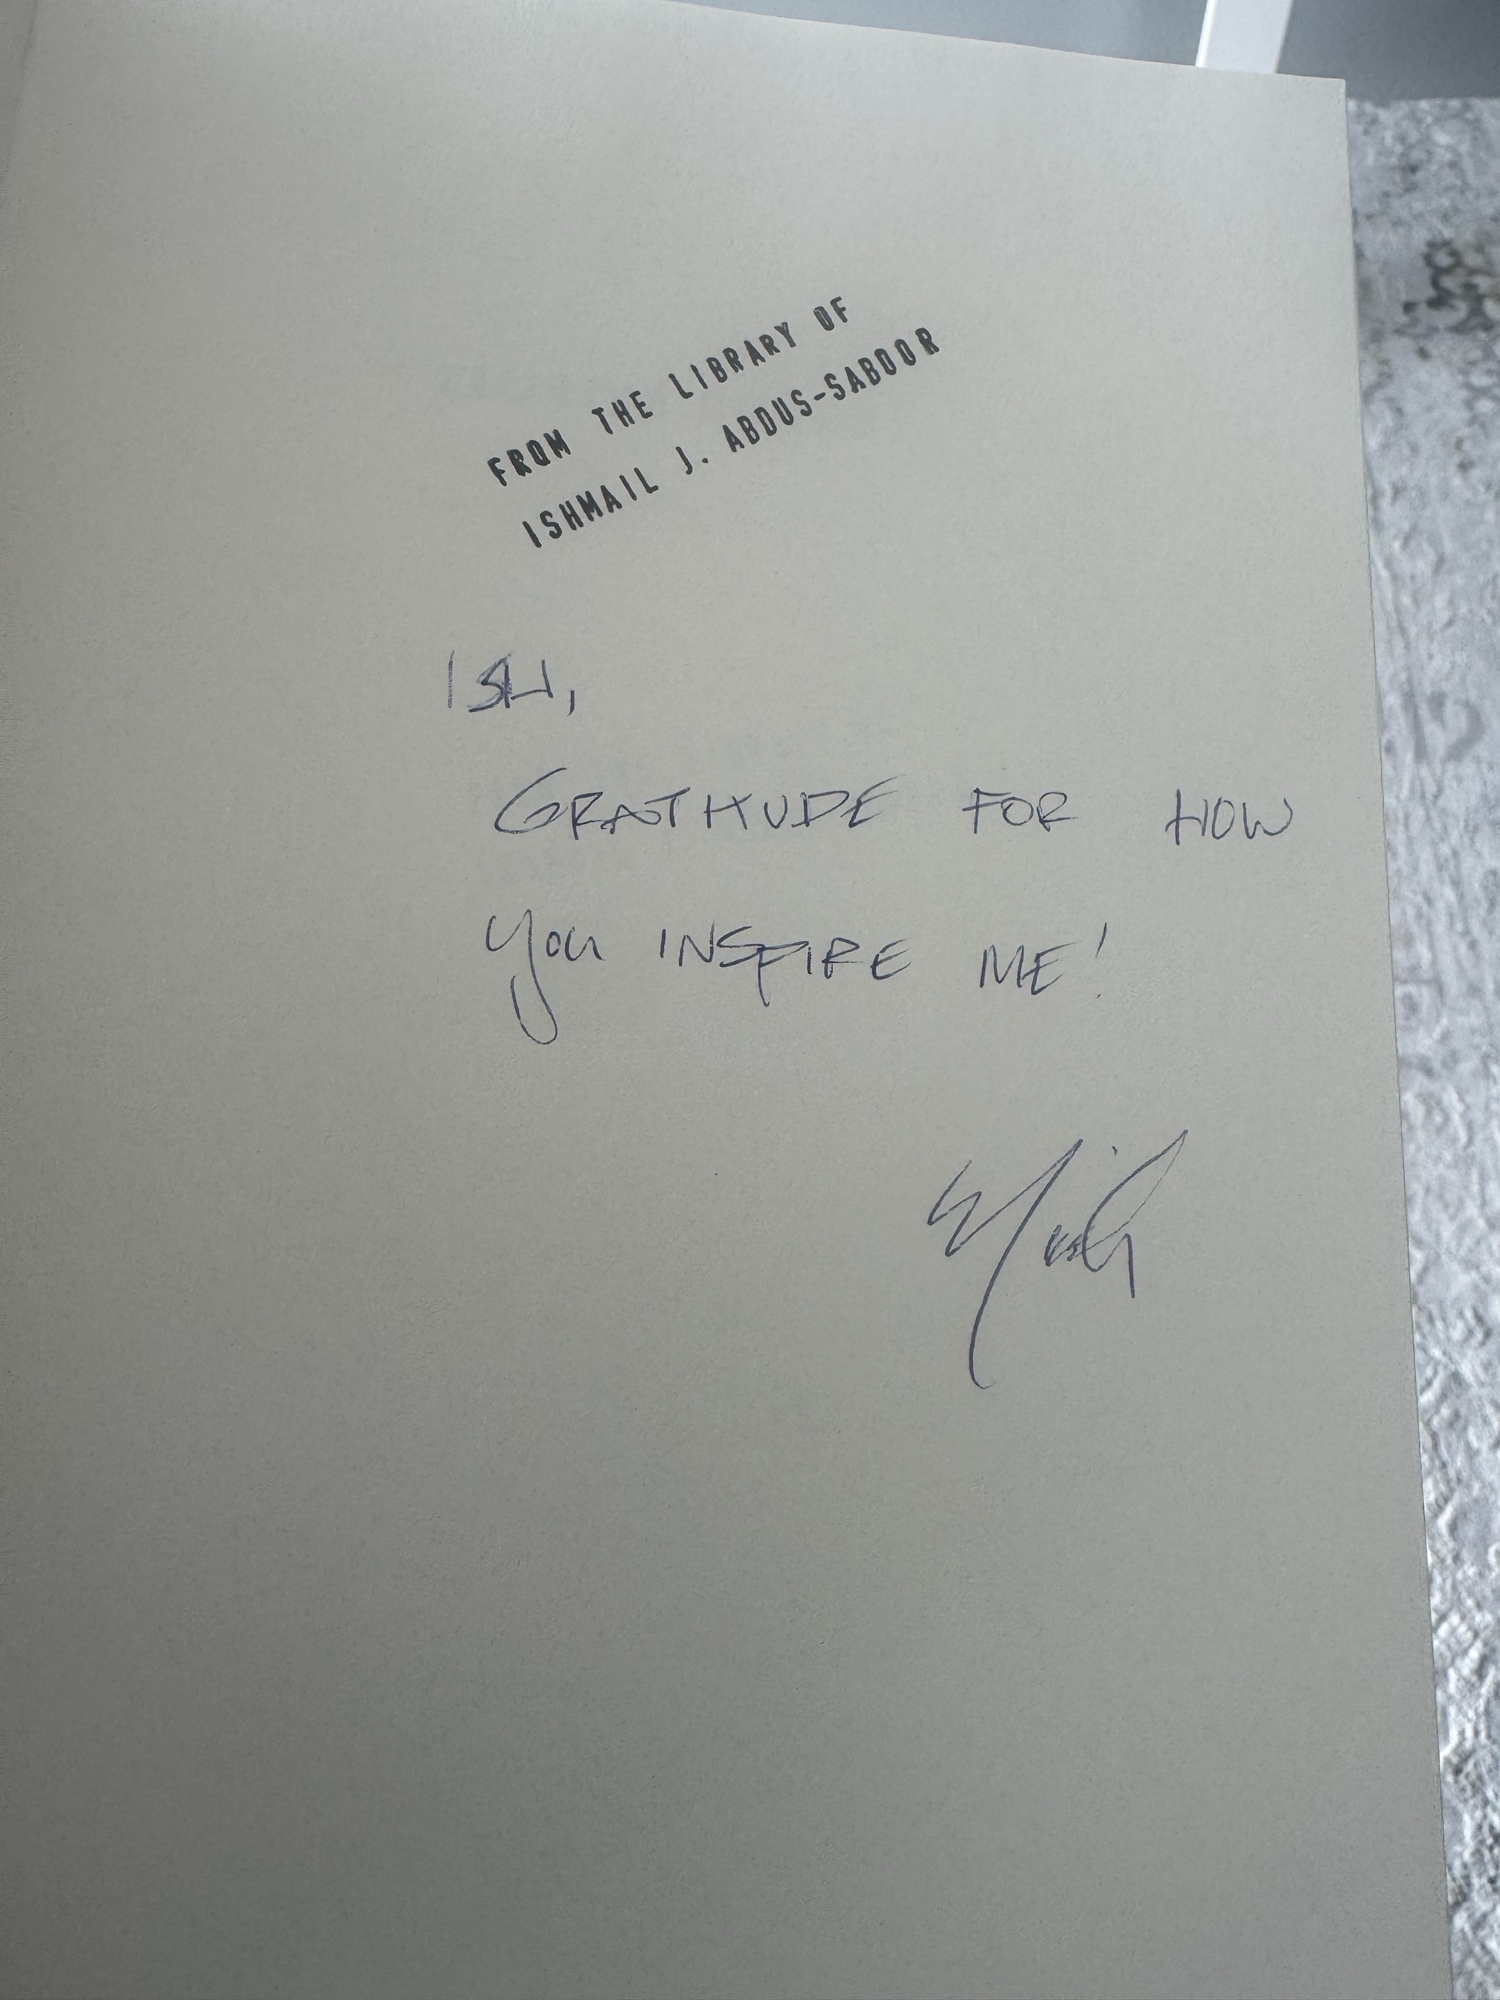 FROM THE LIBRARY OF
ISHMAIL J. ABDUS-SABOOR
ISH,
GRATITUDE FOR HOW
You INSPIRE ME!